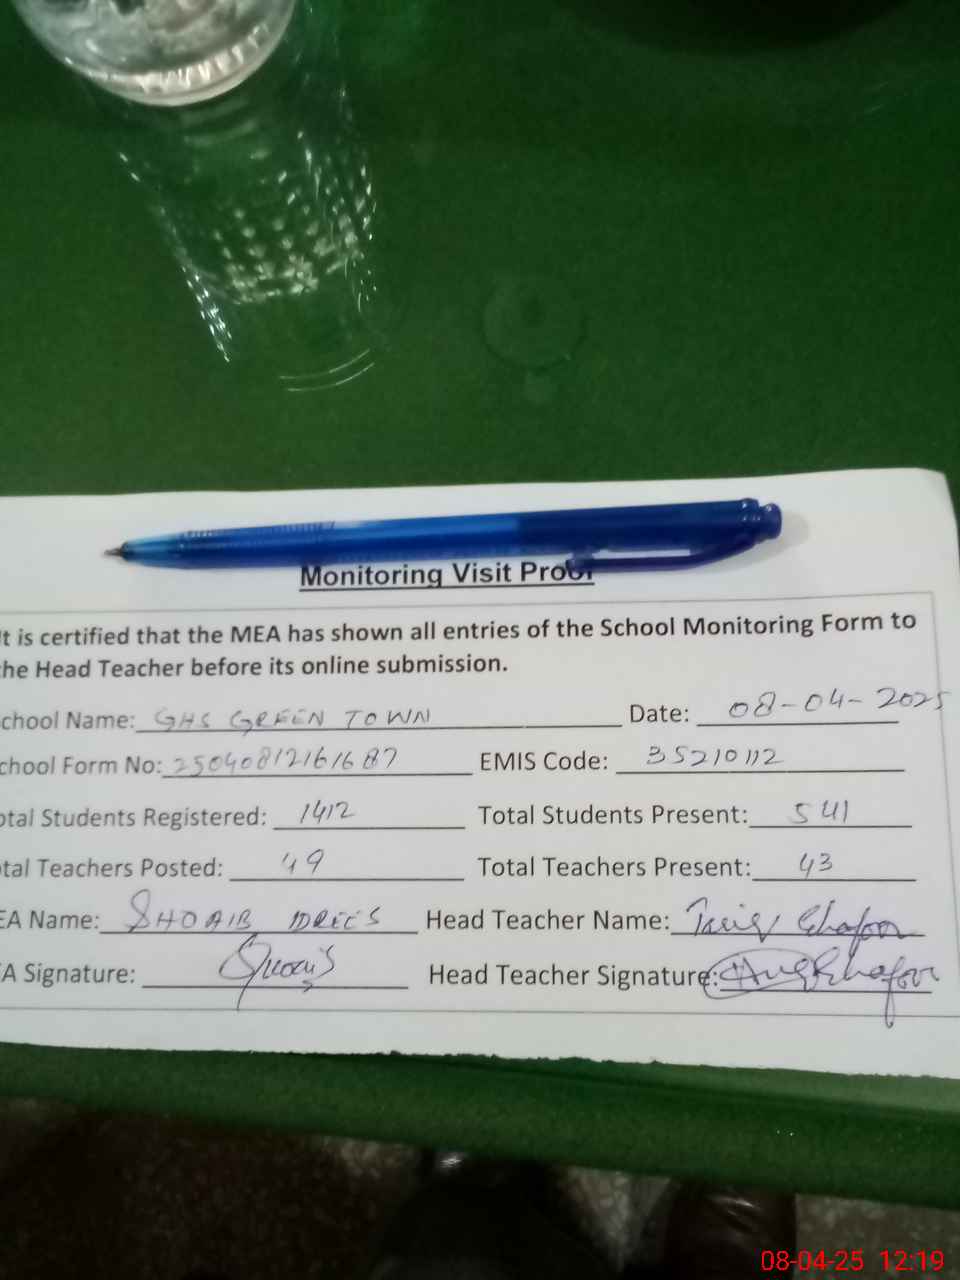 Monitoring Visit Proof
It is certified that the MEA has shown all entries of the School Monitoring Form to
the Head Teacher before its online submission.
chool Name: GHS GREEN TOWN Date: 08-04-2025
chool Form No: 25040812161687 EMIS Code: 35210112
otal Students Registered: 1412 Total Students Present: 541
tal Teachers Posted: 49 Total Teachers Present: 43
EA Name: SHOAIB IDREES Head Teacher Name: Tariq Ghafoor
A Signature: Head Teacher Signature:
08-04-25 12:19